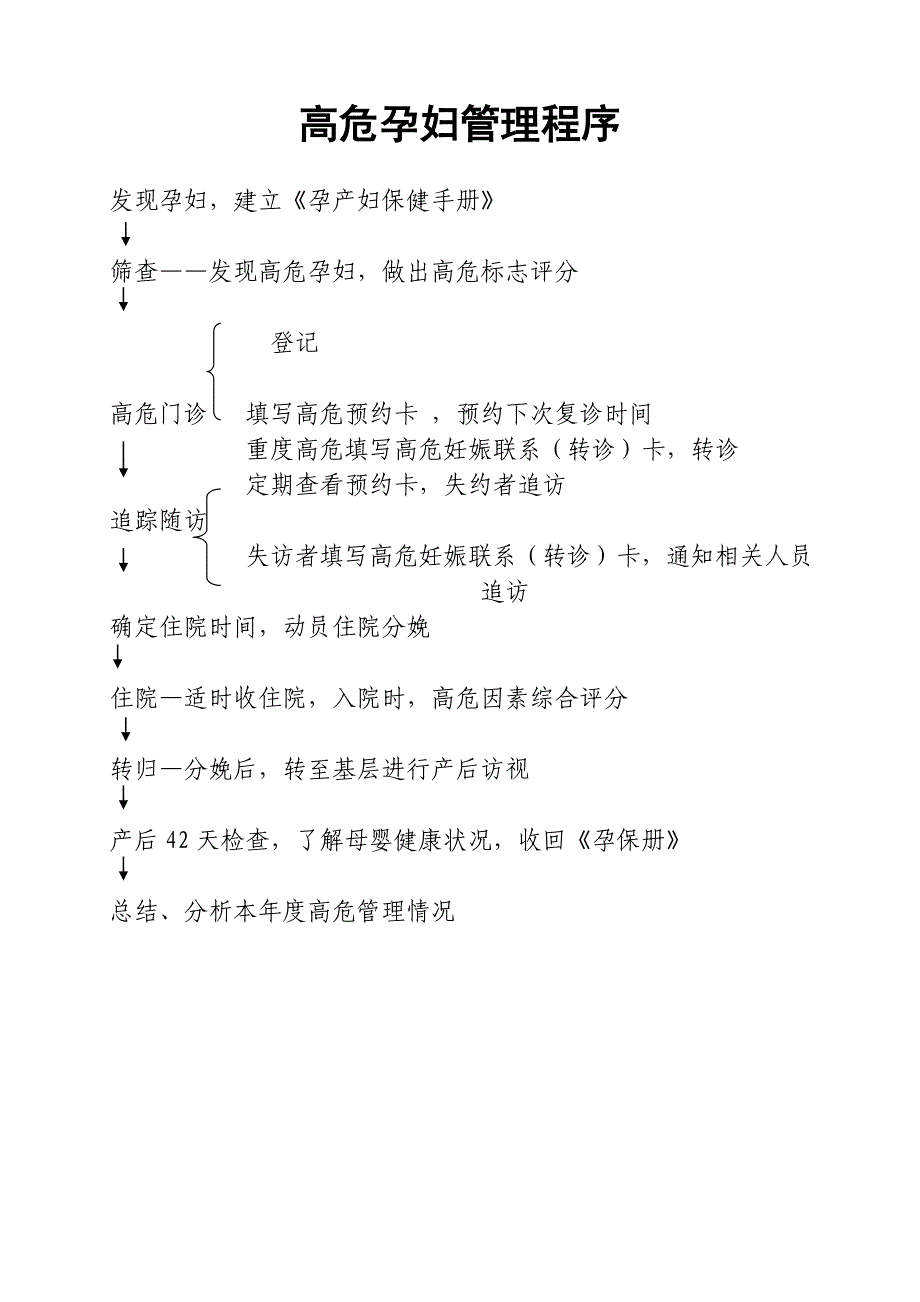 高危孕妇管理程序
发现孕妇，建立《孕产妇保健手册》
筛查——发现高危孕妇，做出高危标志评分
登记
高危门诊 填写高危预约卡 ，预约下次复诊时间
重度高危填写高危妊娠联系（转诊）卡，转诊
定期查看预约卡，失约者追访
追踪随访
失访者填写高危妊娠联系（转诊）卡，通知相关人员
追访
确定住院时间，动员住院分娩
住院—适时收住院，入院时，高危因素综合评分
转归—分娩后，转至基层进行产后访视
产后 42 天检查，了解母婴健康状况，收回《孕保册》
总结、分析本年度高危管理情况